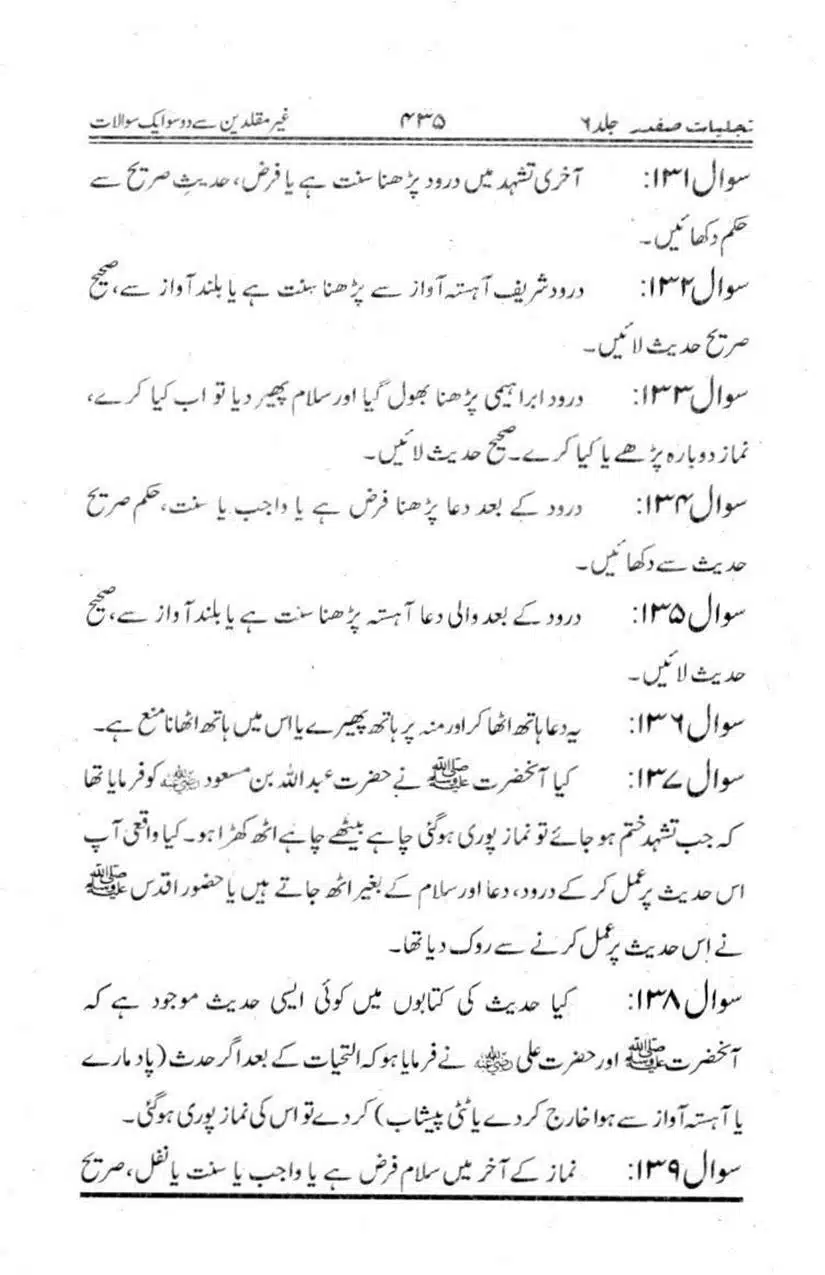 تجلیات صفدر جلد ۶ ۴۳۵ غیر مقلدین سے دو سو ایک سوالات
سوال ۱۳۱: آخری تشہد میں درود پڑھنا سنت ہے یا فرض، حدیثِ صریح سے
حکم دکھائیں۔
سوال ۱۳۲: درود شریف آہستہ آواز سے پڑھنا سنت ہے یا بلند آواز سے، صحیح
صریح حدیث لائیں۔
سوال ۱۳۳: درود ابراہیمی پڑھنا بھول گیا اور سلام پھیر دیا تو اب کیا کرے،
نماز دوبارہ پڑھے یا کیا کرے۔ صحیح حدیث لائیں۔
سوال ۱۳۴: درود کے بعد دعا پڑھنا فرض ہے یا واجب یا سنت، حکم صریح
حدیث سے دکھائیں۔
سوال ۱۳۵: درود کے بعد والی دعا آہستہ پڑھنا سنت ہے یا بلند آواز سے، صحیح
حدیث لائیں۔
سوال ۱۳۶: یہ دعا ہاتھ اٹھا کر اور منہ پر ہاتھ پھیرے یا اس میں ہاتھ اٹھانا منع ہے۔
سوال ۱۳۷: کیا آنحضرت ﷺ نے حضرت عبداللہ بن مسعود رضی اللہ عنہ کو فرمایا تھا
کہ جب تشہد ختم ہو جائے تو نماز پوری ہوگئی چاہے بیٹھے چاہے اٹھ کھڑا ہو۔ کیا واقعی آپ
اس حدیث پر عمل کر کے درود، دعا اور سلام کے بغیر اٹھ جاتے ہیں یا حضور اقدس ﷺ
نے اِس حدیث پر عمل کرنے سے روک دیا تھا۔
سوال ۱۳۸: کیا حدیث کی کتابوں میں کوئی ایسی حدیث موجود ہے کہ
آنحضرت ﷺ اور حضرت علی رضی اللہ عنہ نے فرمایا ہو کہ التحیات کے بعد اگر حدث (پاد مارے
یا آہستہ آواز سے ہوا خارج کر دے یا ٹٹی پیشاب) کر دے تو اس کی نماز پوری ہوگئی۔
سوال ۱۳۹: نماز کے آخر میں سلام فرض ہے یا واجب یا سنت یا نفل، صریح